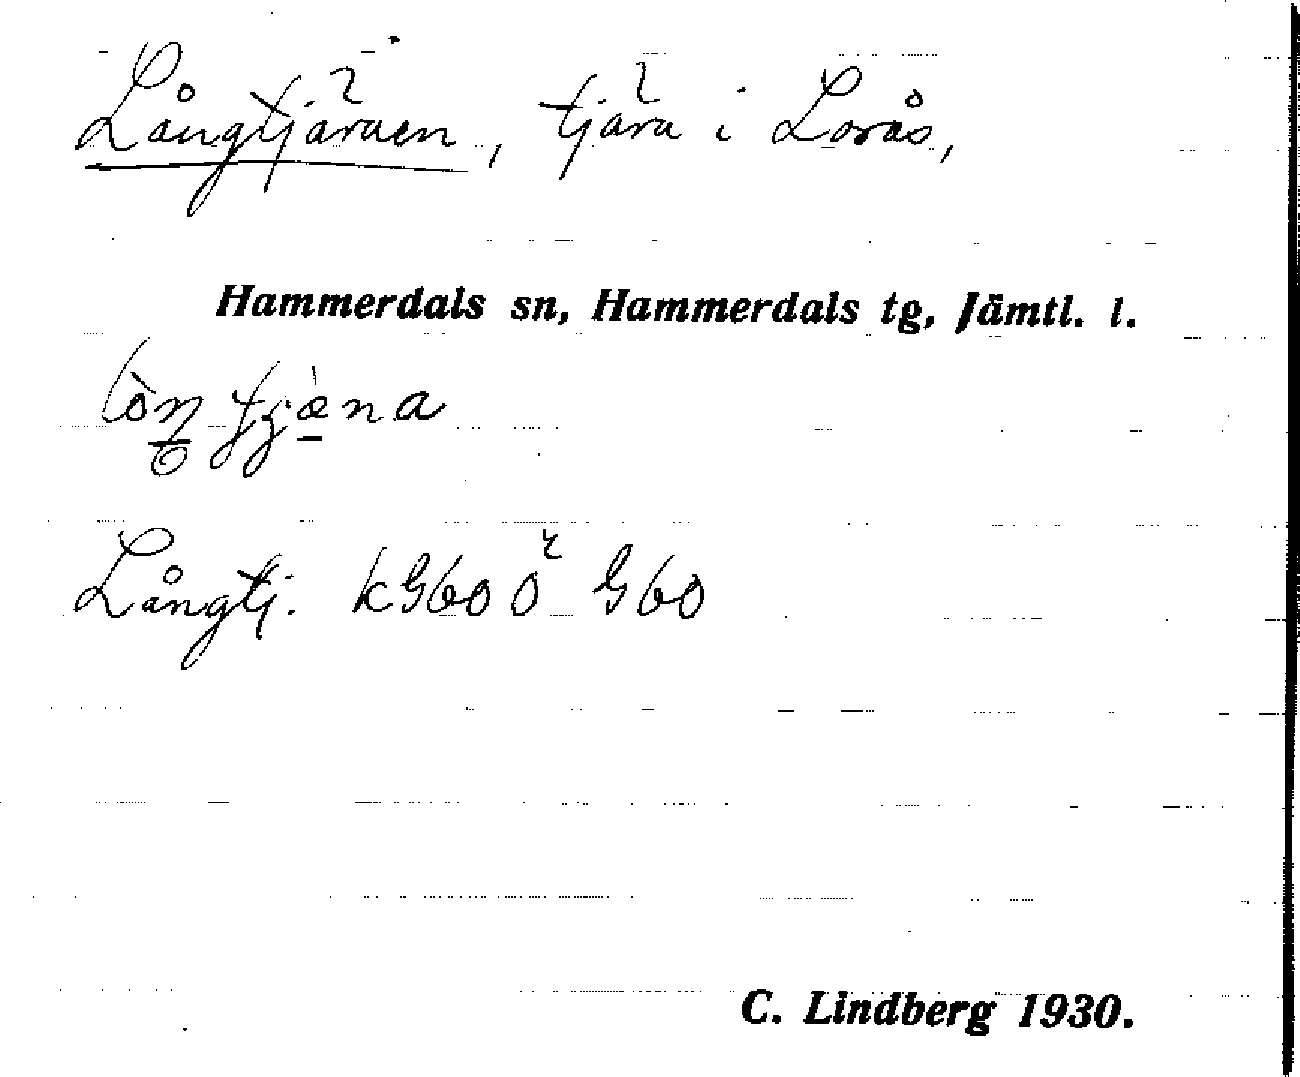 Långtjärnen, tjärn i Lorås,
Hammerdals sn, Hammerdals tg, Jämtl. l.
Långtj. kG60 Ö G60
C. Lindberg 1930.